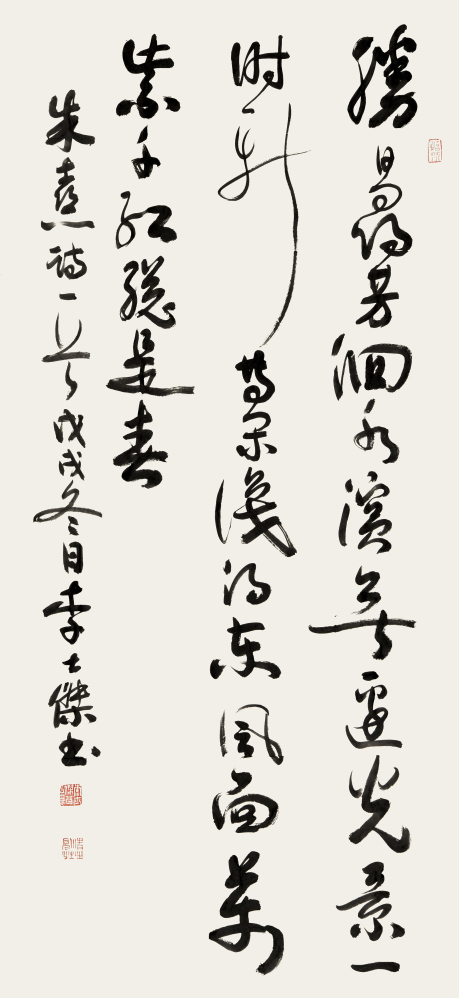 勝日尋芳泗水濱無邊光景一
时新等閒識得东風面萬
紫千红總是春
朱熹詩一首戊戌冬日李士傑书